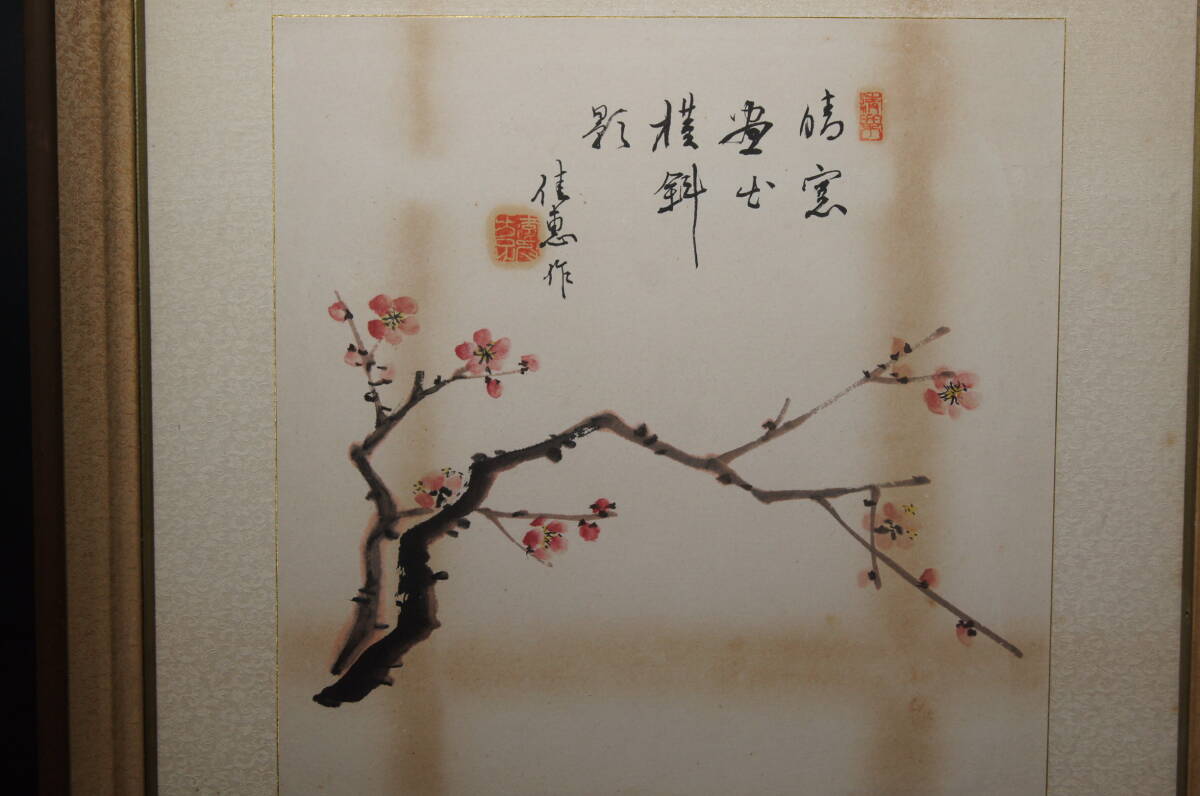 晴窓
畫出
橫斜
影
佳惠作